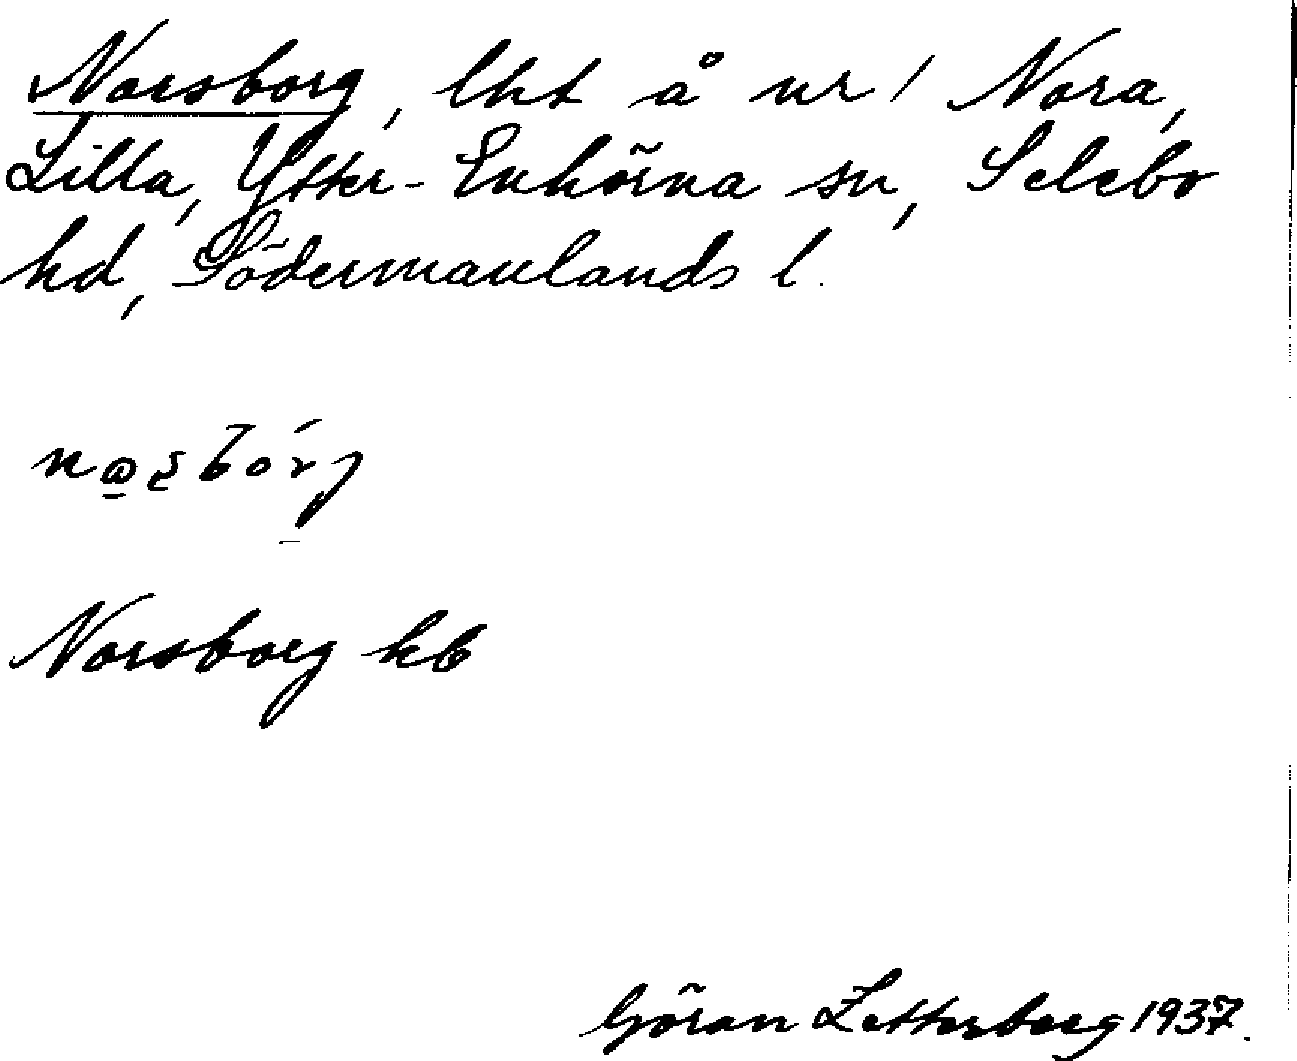 Norsborg, lht å nr 1 Nora,
Lilla, Ytter-Enhörna sn, Selebo
hd, Södermanlands l.
Norsborg kb
Göran Zetterberg 1937.